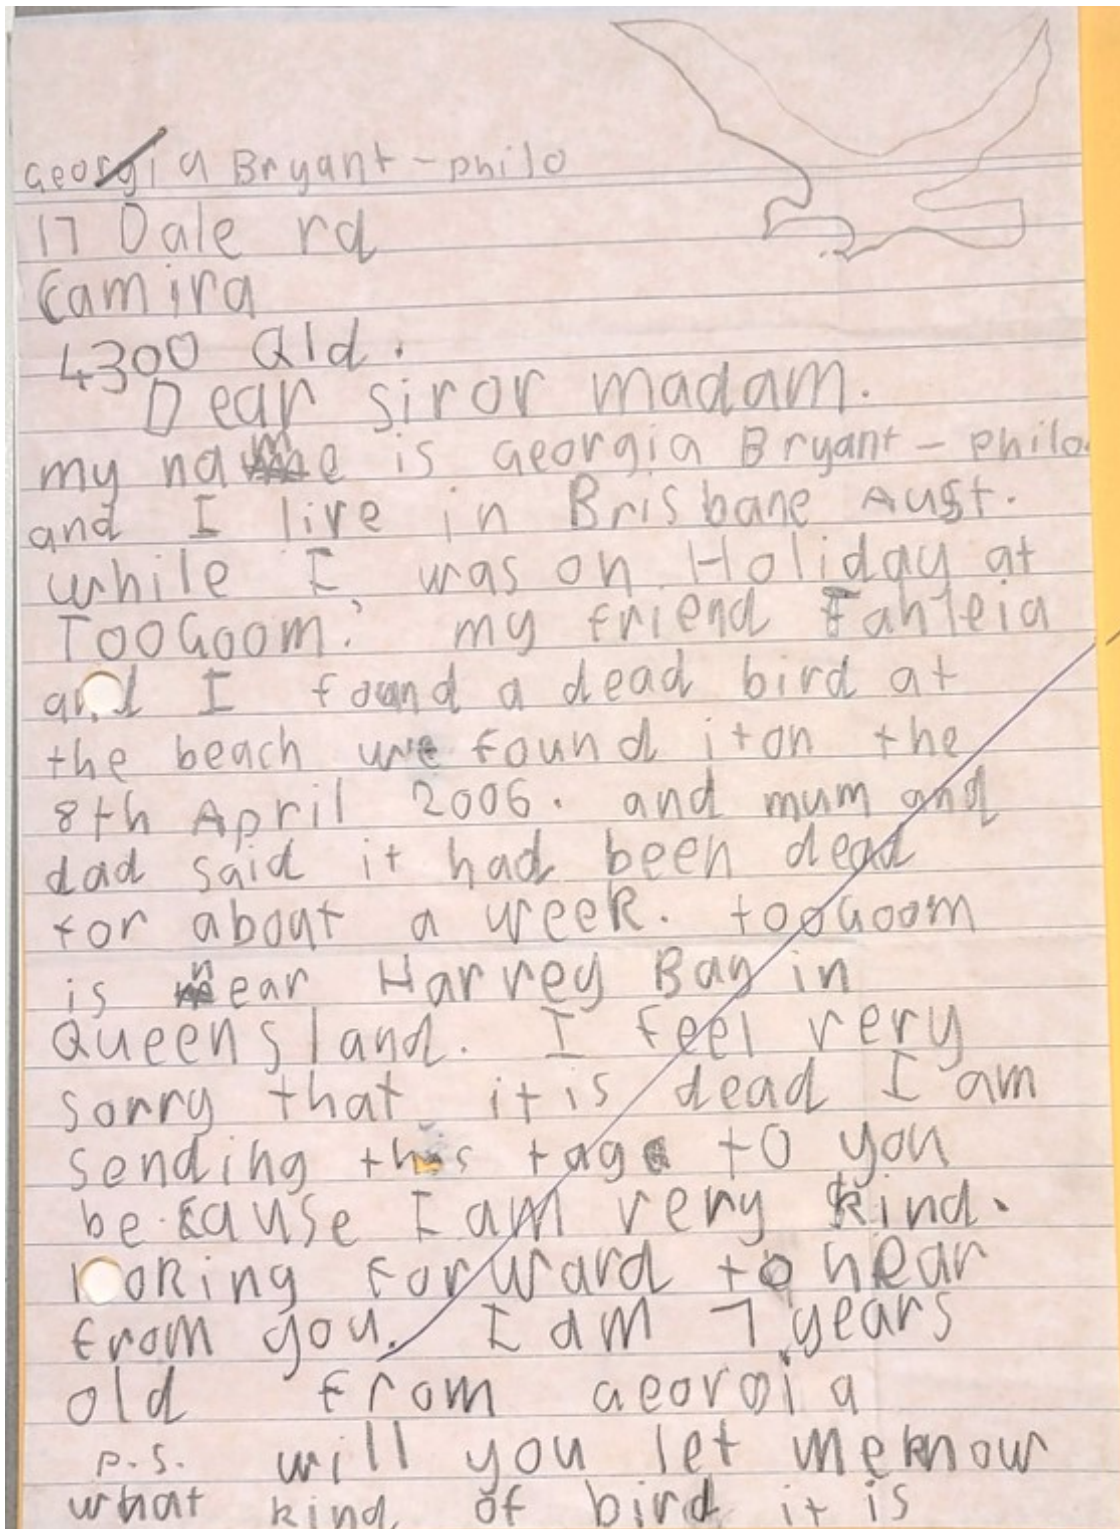 Georgia Bryant - philo
17 Dale rd
Camira
4300 Qld.
Dear siror madam.
my name is Georgia Bryant - philo.
and I live in Brisbane Aust.
while I was on Holiday at
TOOGOOM. my friend Tahleia
and I found a dead bird at
the beach we found iton the
8th April 2006. and mum and
dad said it had been dead
for about a week. tooGoom
is near Harvey Bay in
Queensland. I feel very
sorry that itis dead I am
sending this tag to you
because I am very kind.
looking forward to hear
from you. I am 7 years
old from Georgia
p.s. will you let meknow
what kind of bird it is